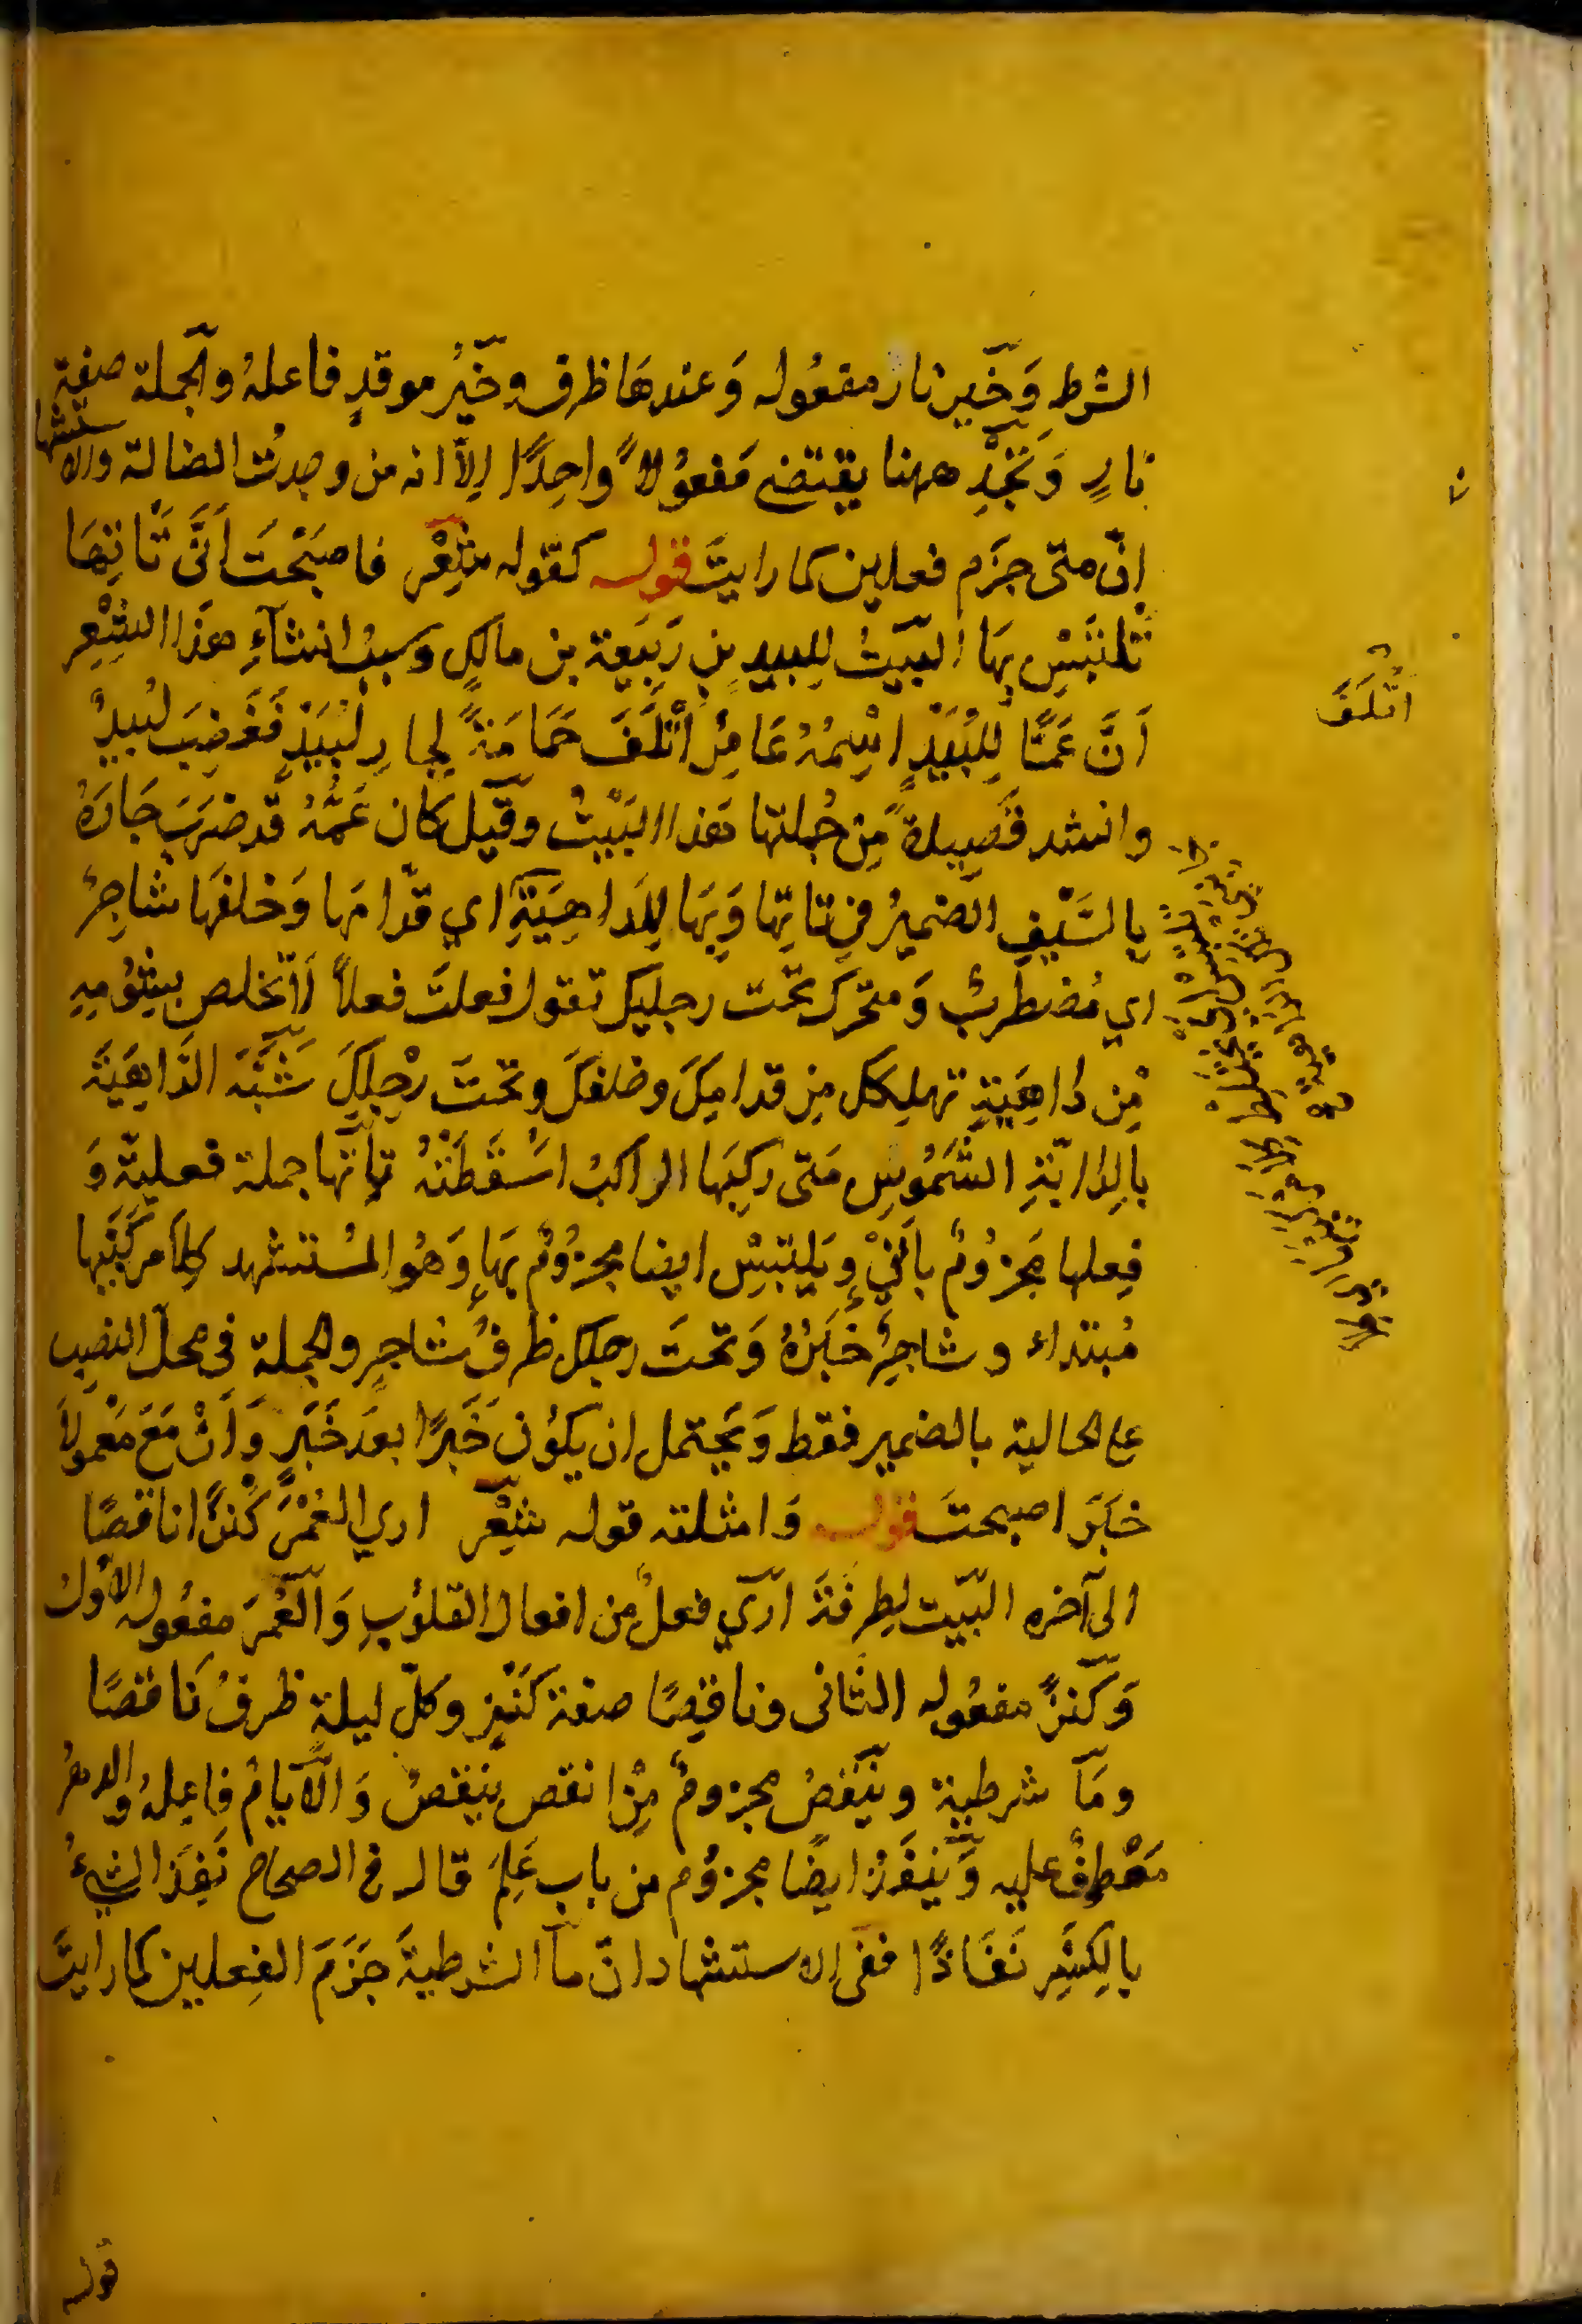 الشرطِ وَخَيرَ نار مفعُوله وَعندهَا ظرف وخَيْرُ موقدٍ فاعلهُ والجملة صفة
نارٍ وَتَجِدْ ههنا يقتضى مَفعوُلاً واحِدًا اِلاَّ انه من وجدتُ الضالة والاستشهاد
اِنّ متى جزَم فعلين كما رايتَ قوله كقوله شِعْر فاصبَحْتَ اَنَّى تَاتِهَا
تَلتَبِسْ بِهَا البَيتُ لِلبيدِ بنِ رَبيَعة بن مالكٍ وسببُ انشآءِ هذا الشِعْرِ
اَنَّ عَمًّا لِلَبيْدٍ اسْمُهُ عَامِرٌ اَتْلَفَ حَمَامَةً لِجارِ لَبيْدٍ فَغَضِبَ لَبيدٌ
وانشد قَصِيدةً مِن جُملتها هَذا البَيْتُ وقيل كان عَمُّهُ قد ضرَبَ جَارَهُ
بِالسَّيفِ الضميرُ في تاتِهَا وَبِهَا لِلدَاهِيَةِ اي قدّامهَا وَخلفهَا شاجِرٌ
اي مُضطَرِبٌ وَمتحرك تحت رجليك تقول فعلتَ فعلاً لا تخلص بِشُومِهِ
مِن دَاهِيَةٍ تهلِكك مِن قدامِكَ وخلفِكَ وتحتَ رِجْلِكَ شَبَّهَ الدَاهِيَةَ
بِالدَابّةِ الشَمُوسِ مَتى ركِبَهَا الراكبُ اسْقَطَتْهُ تاتها جملة فعلية وَ
فِعلها مَجزُومٌ بِاَنّيْ وَيلتبِسْ ايضا مجزُومٌ بِهَا وَهُو المُستشهد كِلاَ مَركَبَيهَا
مُبتداء وشاجِرٌ خَبَرُهُ وَتحتَ رجلك ظرفُ شاجِرٍ والجملة فى محلّ النصب
على الحالية بالضمير فقط وَيَحتمل ان يكوُن خَبَرًا بعدَ خَبَرٍ وَاَنْ مَعَ مَعْموُلاَ
خبَرَ اصبحتَ قوله وَامثلته قوله شِعْر اري العُمْرَ كَنْزًا ناقصًا
الى آخره البَيت لِطرفَةَ اَرَي فعلٌ من افعال القلوُبِ وَالعُمْرَ مفعُوله الاوّل
وَكَنزًا مفعُوله الثانى وناقِصًا صفة كَنْزٍ وكلّ ليلةٍ ظرفُ نَاقصًا
ومَا شرطية وينْقصُ مجزومٌ مِنْ نقص يَنْقصُ وَالاَيامُ فاعِلهُ والدهرُ
مَعْطوفٌ عليه وَيَنفَدْ ايضًا مجزوُم من باب عَلِمَ قال فى الصحاح نَفِذَ الشيءُ
بِالكَسْرِ نَفَاذًا ففى الاستشهاد انّ مآ الشرطيةَ جَزَمَ الفِعلين كما رايتَ
اَتْلَفَ
قوله